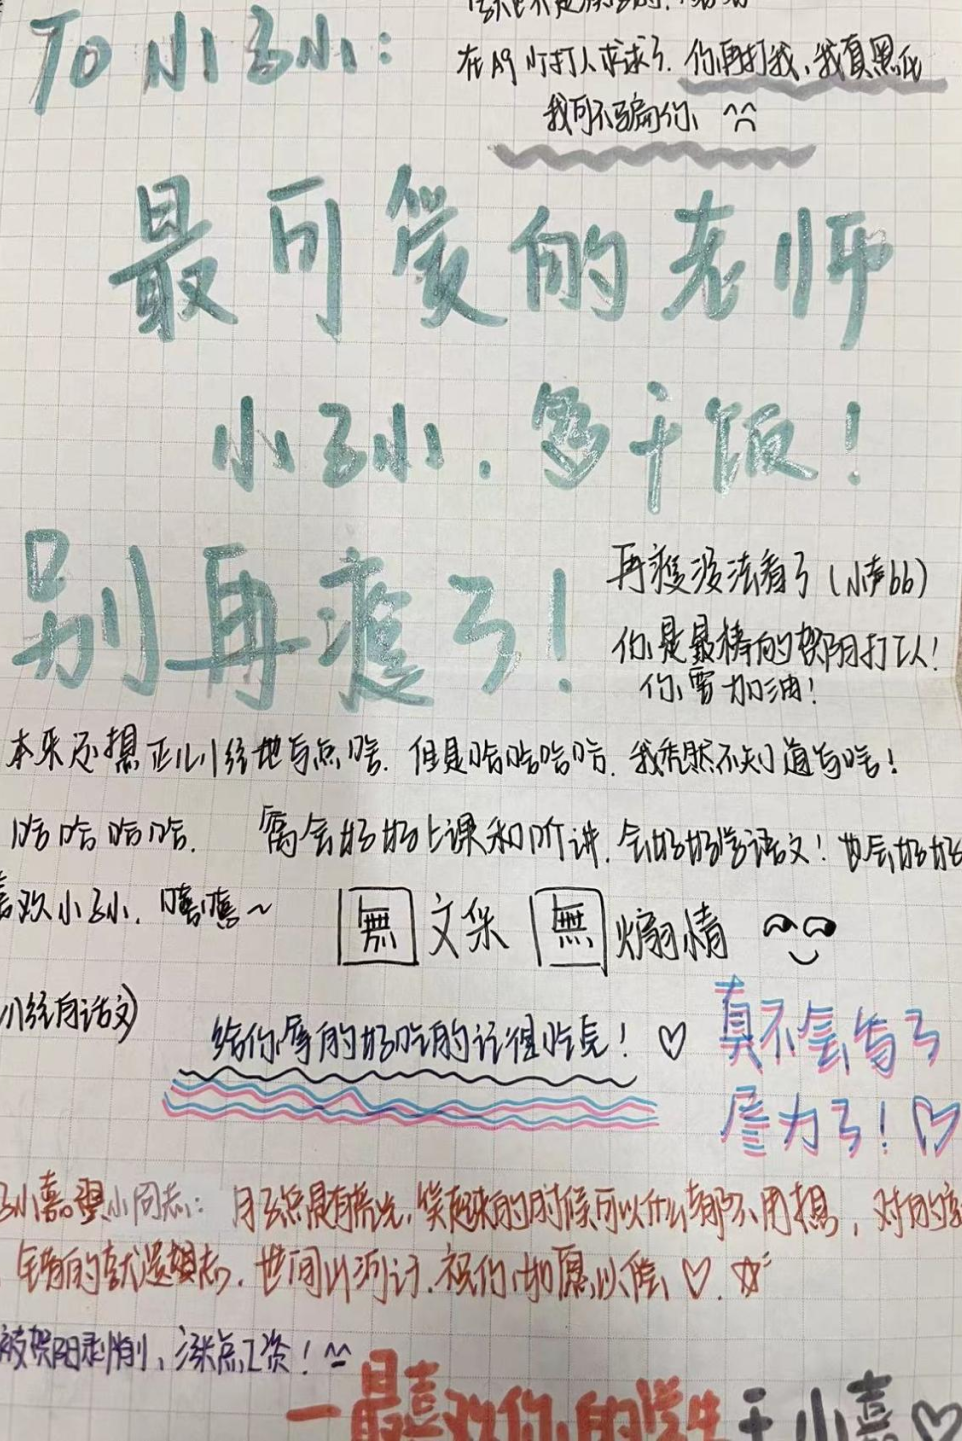 To 小孙:
在 A9 小打人求求了. 你再打我、我真黑化
我可不骗你
最可爱的老师
小孙. 多干饭!
别再瘦了!
再瘦没法看了(小声bb)
你是最棒的贺阳打工人!
你需加油!
本来还想正儿八经地写点啥. 但是哈哈哈哈. 我秃然不知道写啥!
哈哈哈哈. 寓会好好上课和听讲. 会好好学语文! 也会好好
喜欢小孙. 嘻嘻~
無 文采 無 煽情
儿经有话文)
给你写的好吃的记得吃完! ♡
真不会写了
尽力了! ♡
小嘉 小同志: 月亮总是有荒光, 笑起来的时候可以什么都不用想, 对的
错的就遗忘. 世间山河, 祝你, 如愿以偿 ♡ ☆
被贺阳剥削、涨点工资! ^^
一最喜欢你的学生 王小嘉 ♡